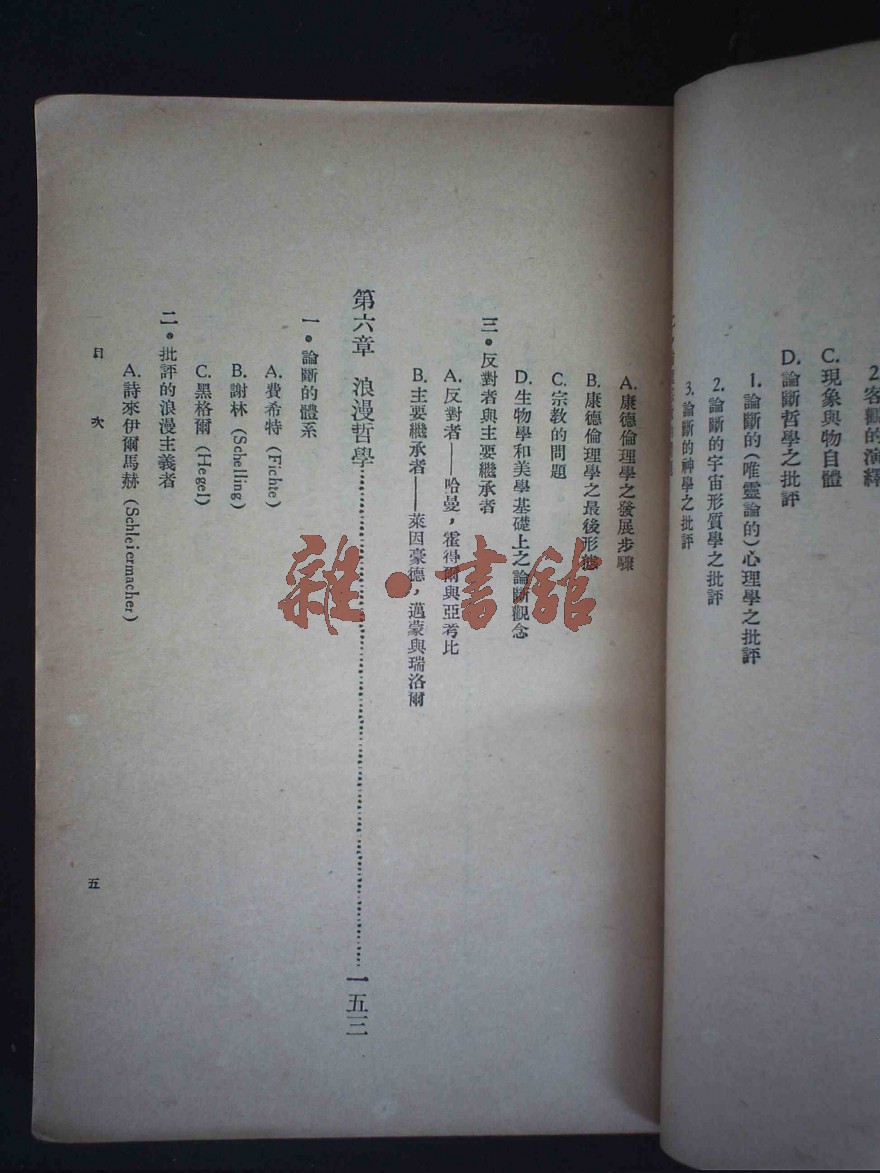 2.客觀的演繹
C.現象與物自體
D.論斷哲學之批評
1.論斷的(唯靈論的)心理學之批評
2.論斷的宇宙形質學之批評
3.論斷的神學之批評
A.康德倫理學之發展步驟
B.康德倫理學之最後形態
C.宗教的問題
D.生物學和美學基礎上之論斷觀念
三•反對者與主要繼承者
A.反對者——哈曼，霍得爾與亞考比
B.主要繼承者——萊因豪德，邁蒙與瑞洛爾
第六章 浪漫哲學……一五三
一•論斷的體系
A.費希特(Fichte)
B.謝林(Schelling)
C.黑格爾(Hegel)
二•批評的浪漫主義者
A.詩來伊爾馬赫(Schleiermacher)
目次 五
雜•書館